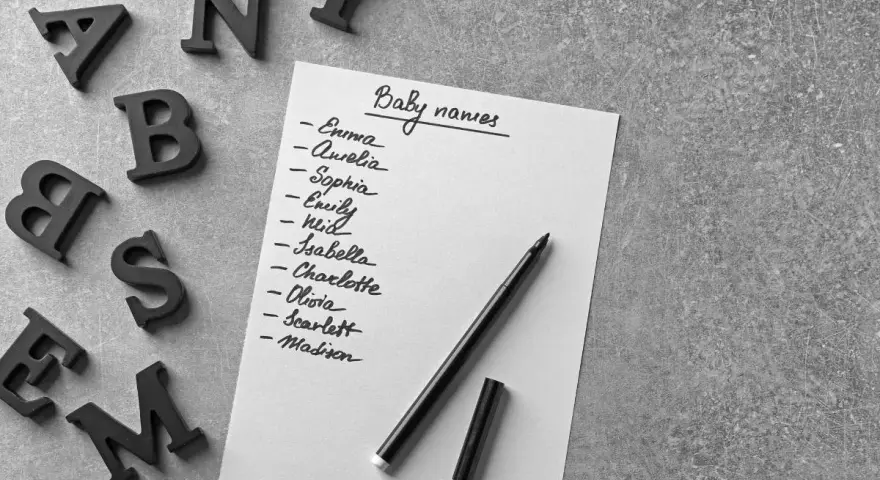 A N
B
B
S
E
M
Baby names
- Emma
- Amelia
- Sophia
- Emily
- Mia
- Isabella
- Charlotte
- Olivia
- Scarlett
- Madison